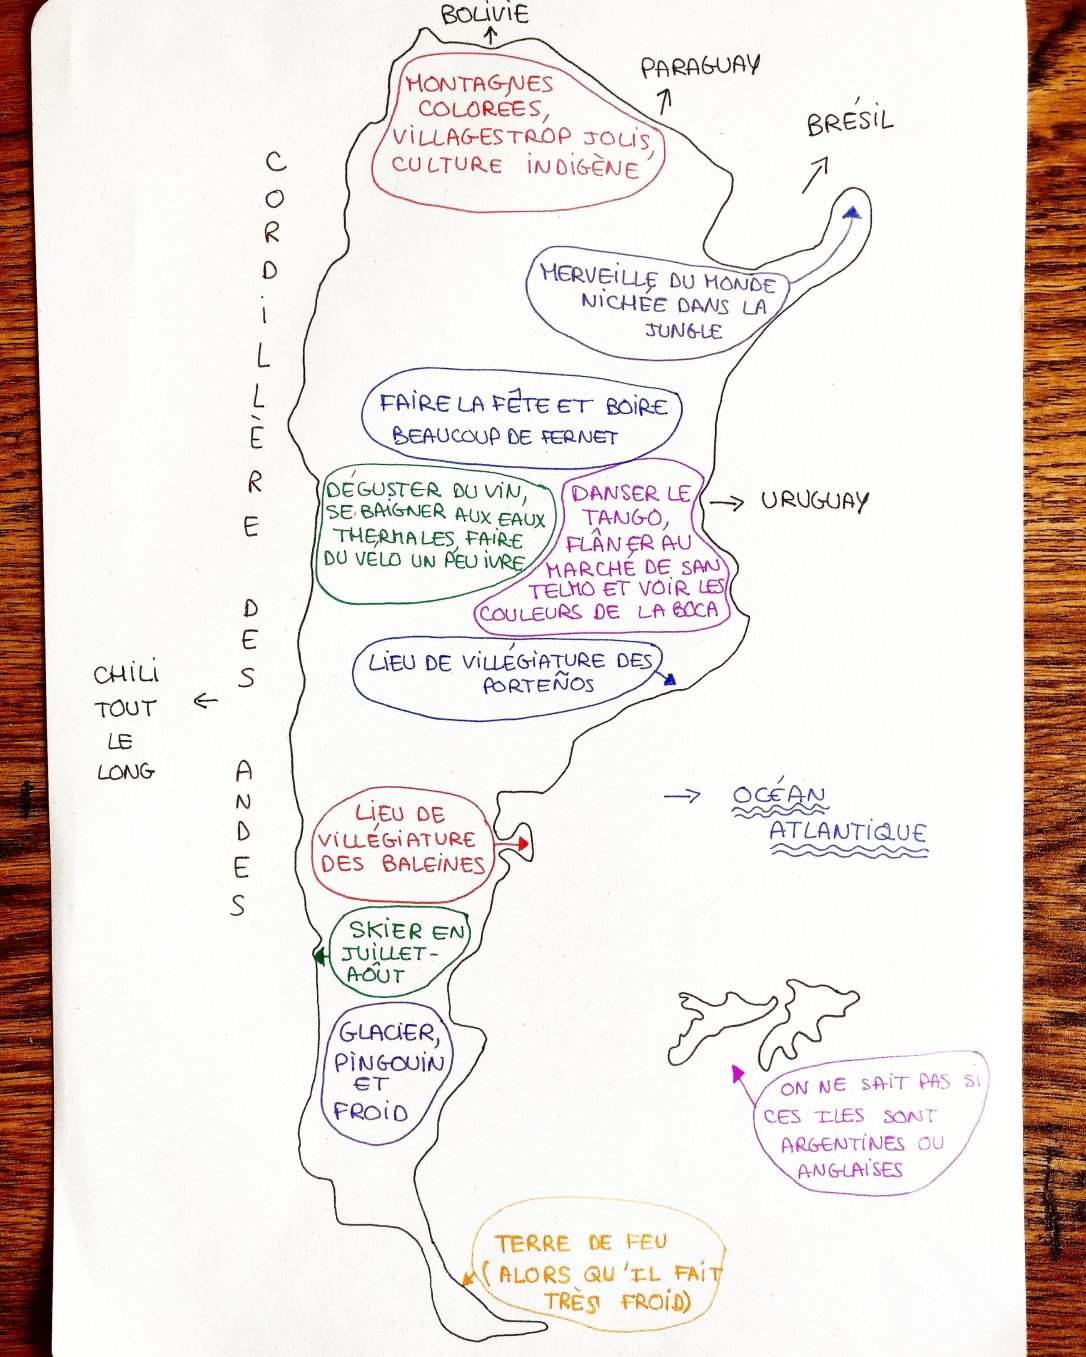 BOLIVIE
PARAGUAY
BRÉSIL
MONTAGNES
COLORÉES,
VILLAGES TROP JOLIS,
CULTURE INDIGÈNE
CORDILLÈRE DES ANDES
MERVEILLE DU MONDE
NICHÉE DANS LA
JUNGLE
FAIRE LA FÊTE ET BOIRE
BEAUCOUP DE FERNET
DÉGUSTER DU VIN,
SE BAIGNER AUX EAUX
THERMALES, FAIRE
DU VÉLO UN PEU IVRE
DANSER LE
TANGO,
FLÂNER AU
MARCHÉ DE SAN
TELMO ET VOIR LES
COULEURS DE LA BOCA
URUGUAY
LIEU DE VILLÉGIATURE DES
PORTEÑOS
CHILI
TOUT
LE
LONG
OCÉAN
ATLANTIQUE
LIEU DE
VILLÉGIATURE
DES BALEINES
SKIER EN
JUILLET-
AOÛT
GLACIER,
PINGOUIN
ET
FROID
ON NE SAIT PAS SI
CES ILES SONT
ARGENTINES OU
ANGLAISES
TERRE DE FEU
(ALORS QU'IL FAIT
TRÈS FROID)